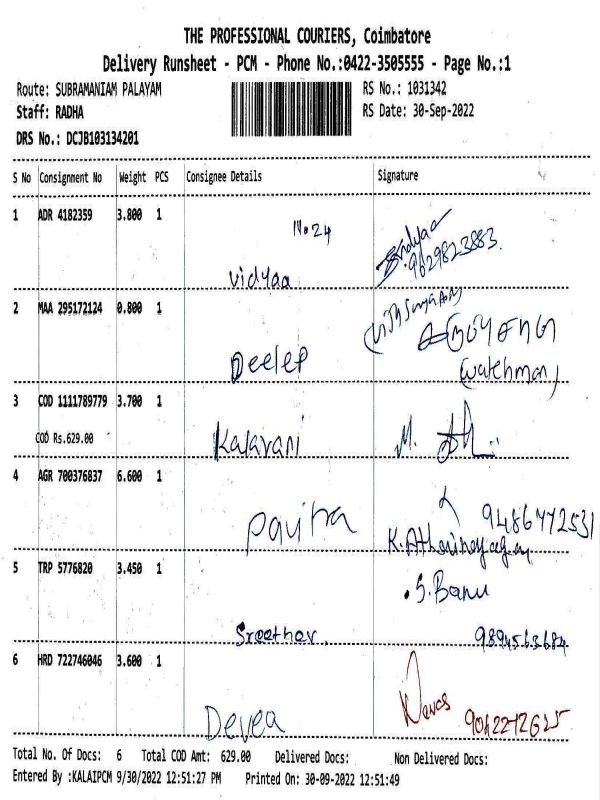 THE PROFESSIONAL COURIERS, Coimbatore
Delivery Runsheet - PCM - Phone No.:0422-3505555 - Page No.:1
Route: SUBRAMANIAM PALAYAM RS No.: 1031342
Staff: RADHA RS Date: 30-Sep-2022
DRS No.: DCJB103134201
S No Consignment No Weight PCS Consignee Details Signature
1 ADR 4182359 3.800 1
No 24
Vidyaa 9629823883
2 MAA 295172124 0.800 1
Deelep (watchman)
3 COD 1111789779 3.700 1
COD Rs.629.00 Kalavani M.
4 AGR 700376837 6.600 1
Pavitra 9486772531
5 TRP 5776820 3.450 1 S. Banu
Sreethar 9894563684
6 HRD 722746046 3.600 1
Devea
Total No. Of Docs: 6 Total COD Amt: 629.00 Delivered Docs: Non Delivered Docs:
Entered By :KALAIPCM 9/30/2022 12:51:27 PM Printed On: 30-09-2022 12:51:49